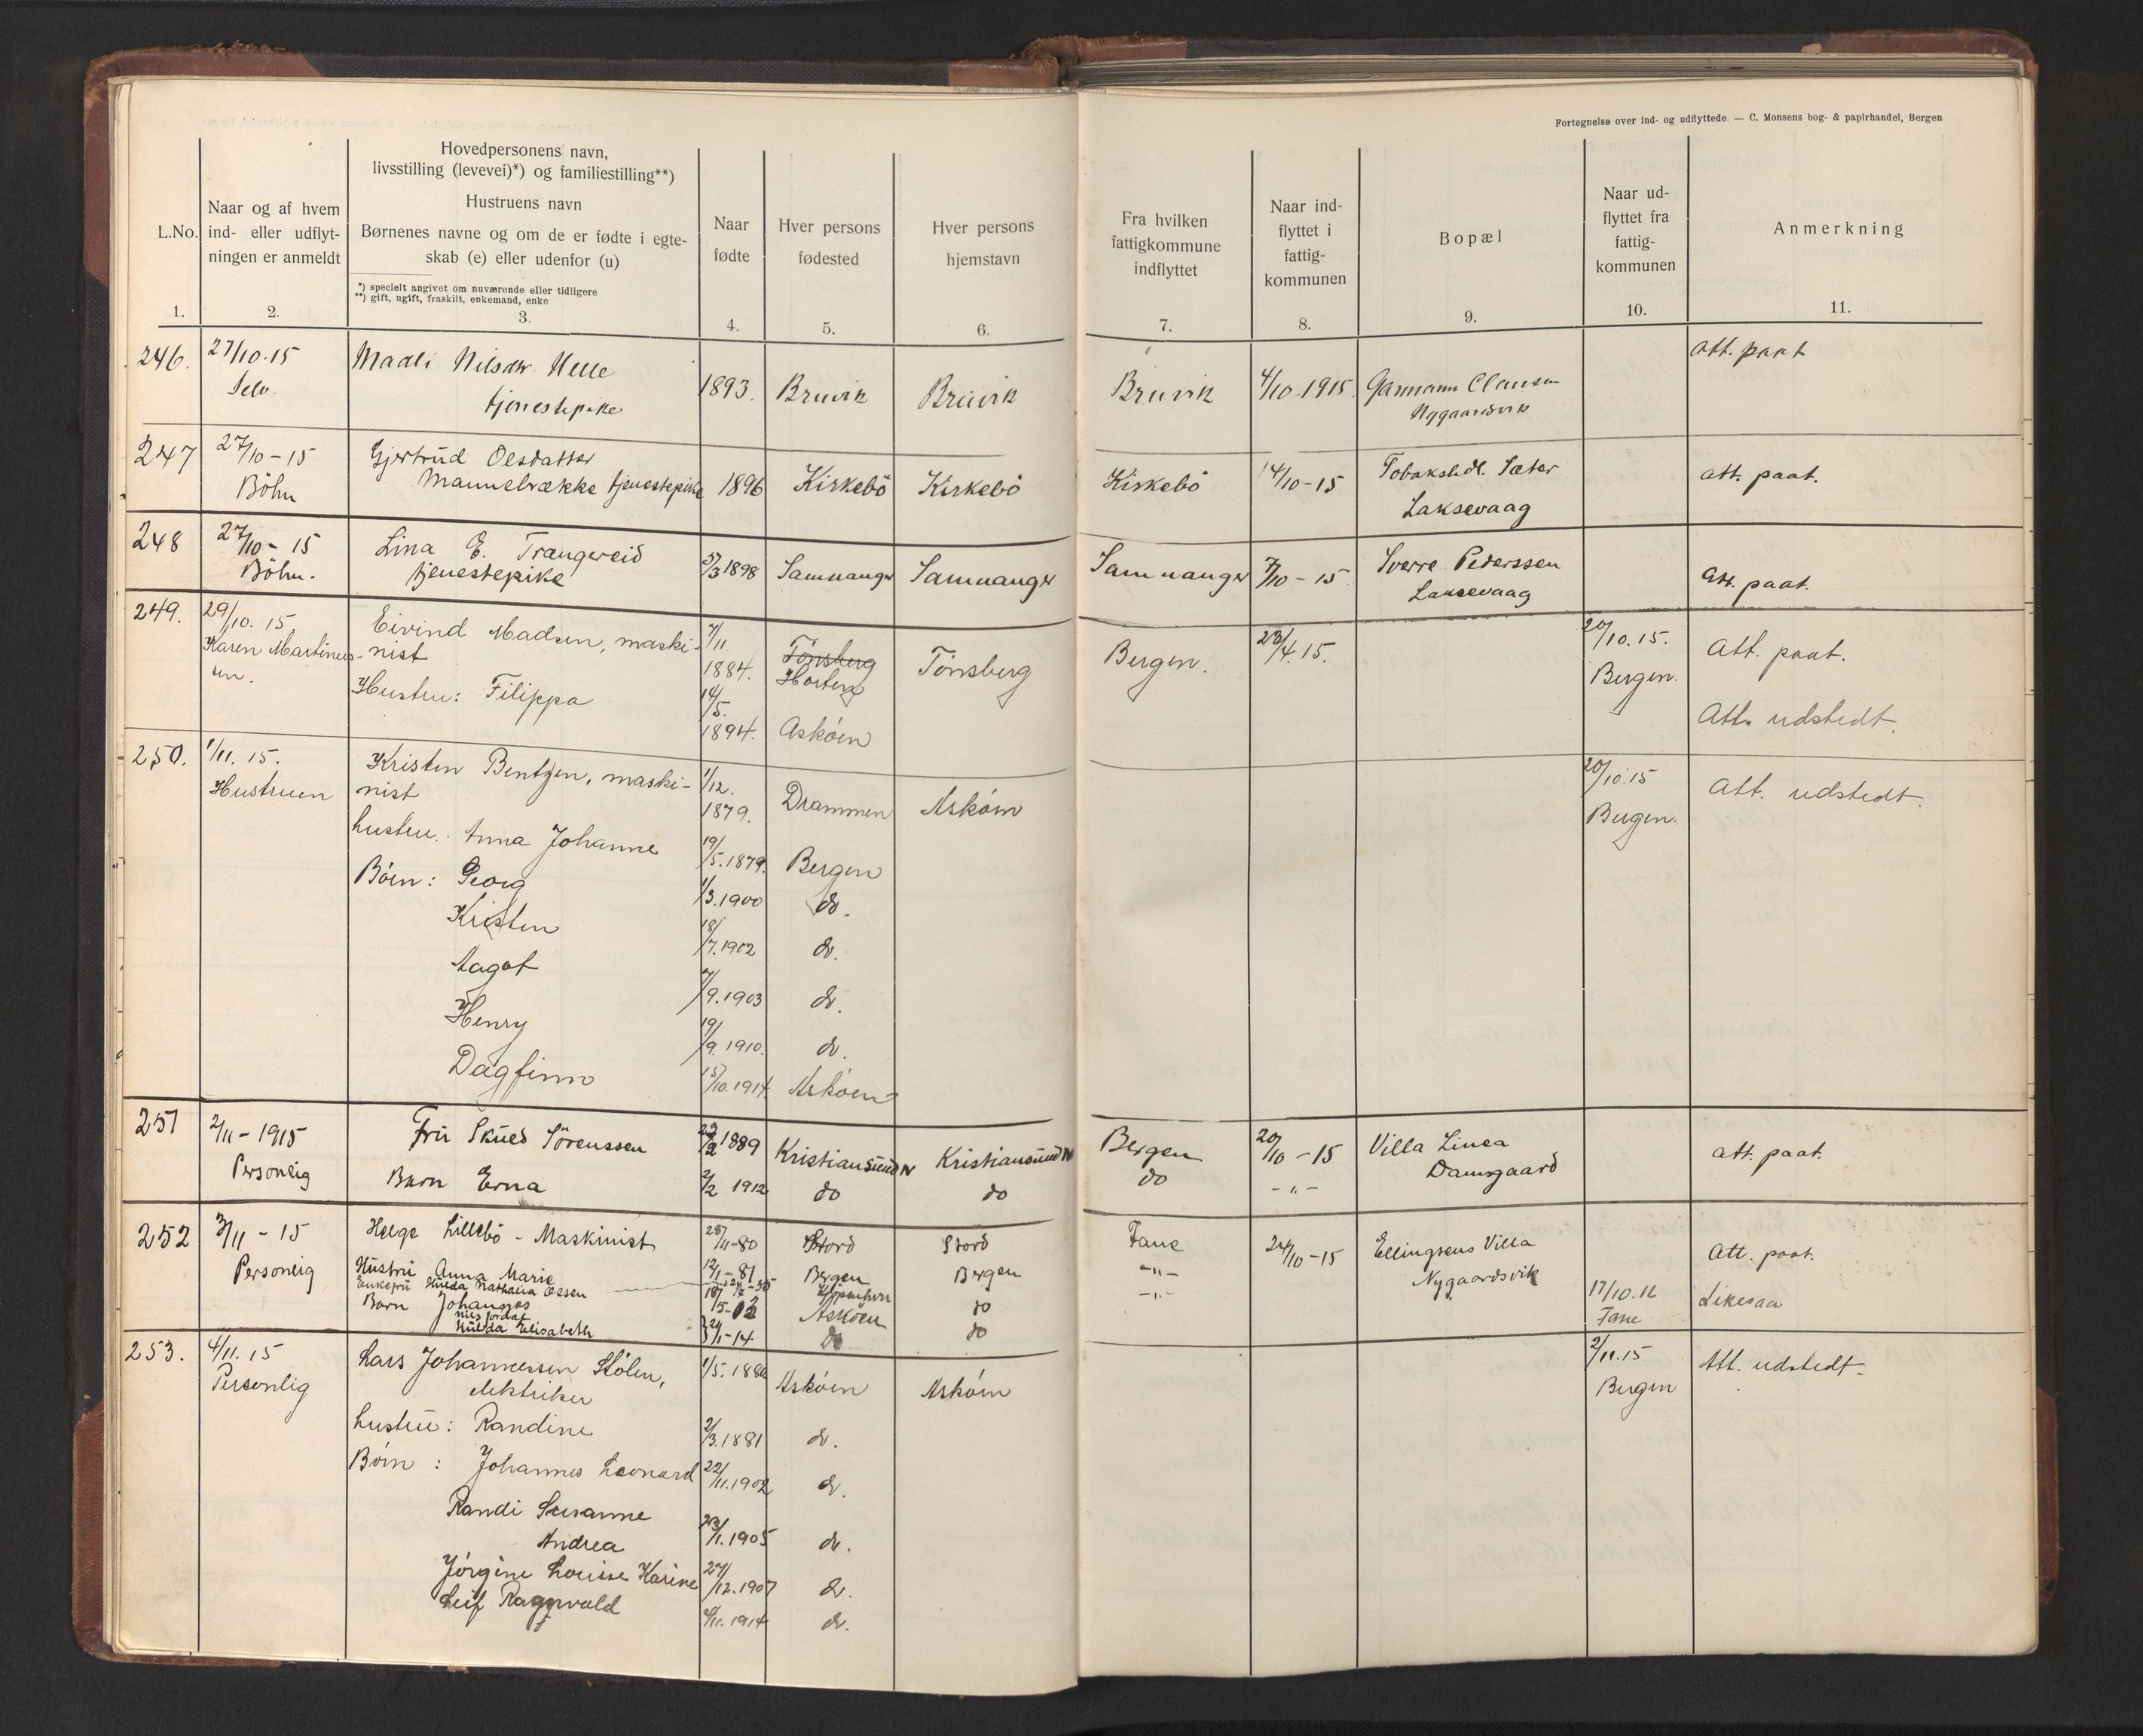 Fortegnelse over ind- og udflyttede. — C. Monsens bog- & papirhandel, Bergen
L.No.
1.
Naar og af hvem
ind- eller udflyt-
ningen er anmeldt
2.
Hovedpersonens navn,
livsstilling (levevei)*) og familiestilling**)
Hustruens navn
Børnenes navne og om de er fødte i egte-
skab (e) eller udenfor (u)
*) specielt angivet om nuværende eller tidligere
**) gift, ugift, fraskilt, enkemand, enke
3.
Naar
fødte
4.
Hver persons
fødested
5.
Hver persons
hjemstavn
6.
Fra hvilken
fattigkommune
indflyttet
7.
Naar ind-
flyttet i
fattig-
kommunen
8.
Bopæl
9.
Naar ud-
flyttet fra
fattig-
kommunen
10.
Anmerkning
11.
246. 27/10.15 Madli Nilsdtr. Helle Att. paat
Selv. tjenestepike 1893. Bruvik Bruvik Bruvik 4/10 1915 Clausen
Nygaardsvik
247 27/10-15 Gjertrud Olsdatter
Böhn tjenestepike 1896 Kirkebö Kirkebö Kirkebö 14/10-15 Tobakshdl. Sæter att. paat.
Laksevaag
248 27/10-15 Lina E. Trangereid
Böhn. tjenestepike 1898 Samnanger Samnanger Samnanger 7/10-15 Sverre Pederssen att. paat.
Laksevaag
249. 29/10.15. Eivind Madsen, maski- 7/11 20/10.15.
Karen Martinus- nist 1884. Tönsberg Tönsberg Bergen. 23/4.15. Bergen. Att. paat.
sen. Horten
Hustru: Filippa 14/5. 1894. Askøen Att. udstedt.
250. 1/11.15. Kristen Bentzen, maski- 1/12. 20/10.15 Att. udstedt.
Hustruen nist 1879. Drammen Askøen Bergen.
hustru. Anna Johanne 19/5.1879. Bergen
Børn: Georg 1/3.1900 do.
Kristen 18/7.1902 do.
Aagot 7/9.1903 do.
Henry 19/9.1910. do.
Dagfinn 15/10.1914. Askøen
251 2/11-1915 Fru Skues Sörenssen 1889 Kristiansund N Kristiansund N Bergen 20/10-15 Villa Linea att. paat.
Personlig Barn Erna 2/2 1912 do do do -"- Damsgaard
252 3/11-15 Helge Lillebö - Maskinist 28/11-80 Stord Stord Fane 24/10-15 Ellingsens Villa Att. paat.
Personlig Hustru Anna Marie 12/1-81 Bergen Bergen -"- Nygaardsvik
Enkefru Hulda Nathalia Essen -"- 17/10.16 Likesaa
Barn Johannes Askøen do Fane
Hulda Elisabeth -14 do do
253. 4/11.15 Lars Johannessen Stölen, 1/5. Askøen Askøen 2/11.15 Att. udstedt.
Personlig elektriker Bergen
hustru: Randine 2/3.1881 do.
Børn: Johannes Leonard 22/11.1902 do.
Randi Susanne
Andrea 23/1.1905 do.
Jörgine Louise Karine 27/12.1907 do.
Leif Ragnvald 4/11.1914 do.